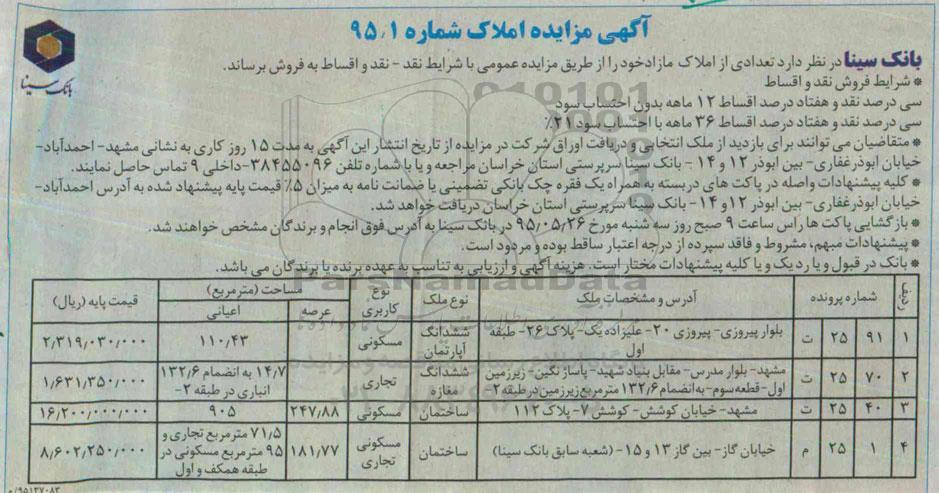 آگهی مزایده املاک شماره ۹۵٫۱
بانک سینا
بانک سینا در نظر دارد تعدادی از املاک مازاد خود را از طریق مزایده عمومی با شرایط نقد - نقد و اقساط به فروش برساند.
* شرایط فروش نقد و اقساط
سی درصد نقد و هفتاد درصد اقساط ۱۲ ماهه بدون احتساب سود
سی درصد نقد و هفتاد درصد اقساط ۳۶ ماهه با احتساب سود ۲۱٪
* متقاضیان می توانند برای بازدید از ملک انتخابی و دریافت اوراق شرکت در مزایده از تاریخ انتشار این آگهی به مدت ۱۵ روز کاری به نشانی مشهد- احمدآباد-
خیابان ابوذرغفاری- بین ابوذر ۱۲ و ۱۴ - بانک سینا سرپرستی استان خراسان مراجعه و یا با شماره تلفن ۳۸۴۵۵۰۹۶-داخلی ۹ تماس حاصل نمایند.
* کلیه پیشنهادات واصله در پاکت های دربسته به همراه یک فقره چک بانکی تضمینی یا ضمانت نامه به میزان ۵٪ قیمت پایه پیشنهاد شده به آدرس احمدآباد-
خیابان ابوذرغفاری- بین ابوذر ۱۲ و ۱۴- بانک سینا سرپرستی استان خراسان دریافت خواهد شد.
* بازگشایی پاکت ها راس ساعت ۹ صبح روز سه شنبه مورخ ۹۵٫۰۵٫۲۶ در بانک سینا به آدرس فوق انجام و برندگان مشخص خواهند شد.
* پیشنهادات مبهم، مشروط و فاقد سپرده از درجه اعتبار ساقط بوده و مردود است.
* بانک در قبول و یا رد یک و یا کلیه پیشنهادات مختار است. هزینه آگهی و ارزیابی به تناسب به عهده برنده یا برندگان می باشد.
ParsNamadData
ردیف شماره پرونده آدرس و مشخصات ملک نوع ملک نوع کاربری مساحت (مترمربع) عرصه اعیانی قیمت پایه (ریال)
۱ ۹۱ ۲۵ ت بلوار پیروزی- پیروزی ۲۰- علیزاده یک- پلاک ۲۶- طبقه اول ششدانگ آپارتمان مسکونی ۱۱۰٫۴۳ ۲٫۳۱۹٫۰۳۰٫۰۰۰
۲ ۷۰ ۲۵ ت مشهد- بلوار مدرس- مقابل بنیاد شهید- پاساژ نگین- زیرزمین اول- قطعه سوم- به انضمام ۱۳۲٫۶ مترمربع زیرزمین در طبقه ۲- ششدانگ مغازه تجاری ۱۴٫۷ به انضمام ۱۳۲٫۶ انباری در طبقه ۲- ۱٫۶۳۱٫۳۵۰٫۰۰۰
۳ ۴۰ ۲۵ ت مشهد- خیابان کوشش- کوشش ۷- پلاک ۱۱۲ ساختمان مسکونی ۲۴۷٫۸۸ ۹۰۵ ۱۶٫۲۰۰٫۰۰۰٫۰۰۰
۴ ۱ ۲۵ م خیابان گاز- بین گاز ۱۳ و ۱۵- (شعبه سابق بانک سینا) ساختمان مسکونی تجاری ۱۸۱٫۷۷ ۷۱٫۵ مترمربع تجاری و ۹۵ مترمربع مسکونی در طبقه همکف و اول ۸٫۶۰۲٫۲۵۰٫۰۰۰
/۹۵۱۳۷۰۸۳م